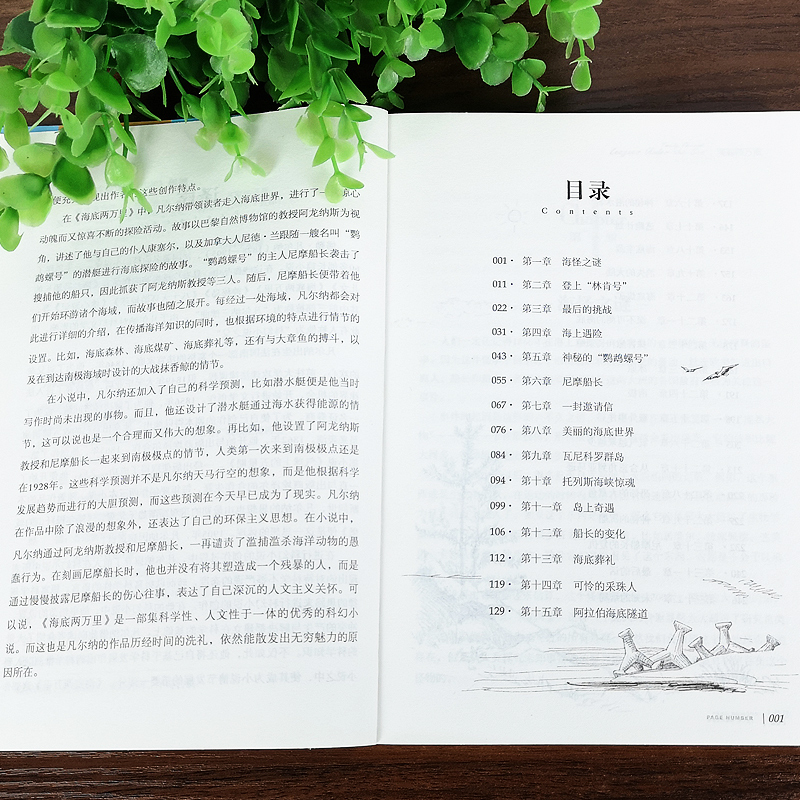 便充 现出作者 这些创作特点。
在《海底两万里》中,凡尔纳带领读者走入海底世界,进行了一 惊心
动魄而又惊喜不断的探险活动。故事以巴黎自然博物馆的教授阿龙纳斯为视
角,讲述了他与自己的仆人康塞尔,以及加拿大人尼德·兰跟随一艘名叫“鹦
鹉螺号”的潜艇进行海底探险的故事。“鹦鹉螺号”的主人尼摩船长袭击了
搜捕他的船只,因此抓获了阿龙纳斯教授等三人。随后,尼摩船长便带着他
们开始环游诸个海域,而故事也随之展开。每经过一处海域,凡尔纳都会对
此进行详细的介绍,在传播海洋知识的同时,也根据环境的特点进行情节的
设置。比如,海底森林、海底煤矿、海底葬礼等,还有与大章鱼的搏斗,以
及在到达南极海域时设计的大战抹香鲸的情节。
在小说中,凡尔纳还加入了自己的科学预测,比如潜水艇便是他当时
写作时尚未出现的事物。而且,他还设计了潜水艇通过海水获得能源的情
节,这可以说也是一个合理而又伟大的想象。再比如,他设置了阿龙纳斯
教授和尼摩船长一起来到南极极点的情节,人类第一次来到南极极点还是
在1928年。这些科学预测并不是凡尔纳天马行空的想象,而是他根据科学
发展趋势而进行的大胆预测,而这些预测在今天早已成为了现实。凡尔纳
在作品中除了浪漫的想象外,还表达了自己的环保主义思想。在小说中,
凡尔纳通过阿龙纳斯教授和尼摩船长,一再谴责了滥捕滥杀海洋动物的愚
蠢行为。在刻画尼摩船长时,他也并没有将其塑造成一个残暴的人,而是
通过慢慢披露尼摩船长的伤心往事,表达了自己深沉的人文主义关怀。可
以说,《海底两万里》是一部集科学性、人文性于一体的优秀的科幻小
说。而这也是凡尔纳的作品历经时间的洗礼,依然能散发出无穷魅力的原
因所在。
目录
Contents
001· 第一章 海怪之谜
011· 第二章 登上“林肯号”
022· 第三章 最后的挑战
031· 第四章 海上遇险
043· 第五章 神秘的“鹦鹉螺号”
055· 第六章 尼摩船长
067· 第七章 一封邀请信
076· 第八章 美丽的海底世界
084· 第九章 瓦尼科罗群岛
094· 第十章 托列斯海峡惊魂
099· 第十一章 岛上奇遇
106· 第十二章 船长的变化
112· 第十三章 海底葬礼
119· 第十四章 可怜的采珠人
129· 第十五章 阿拉伯海底隧道
PAGE NUMBER | 001